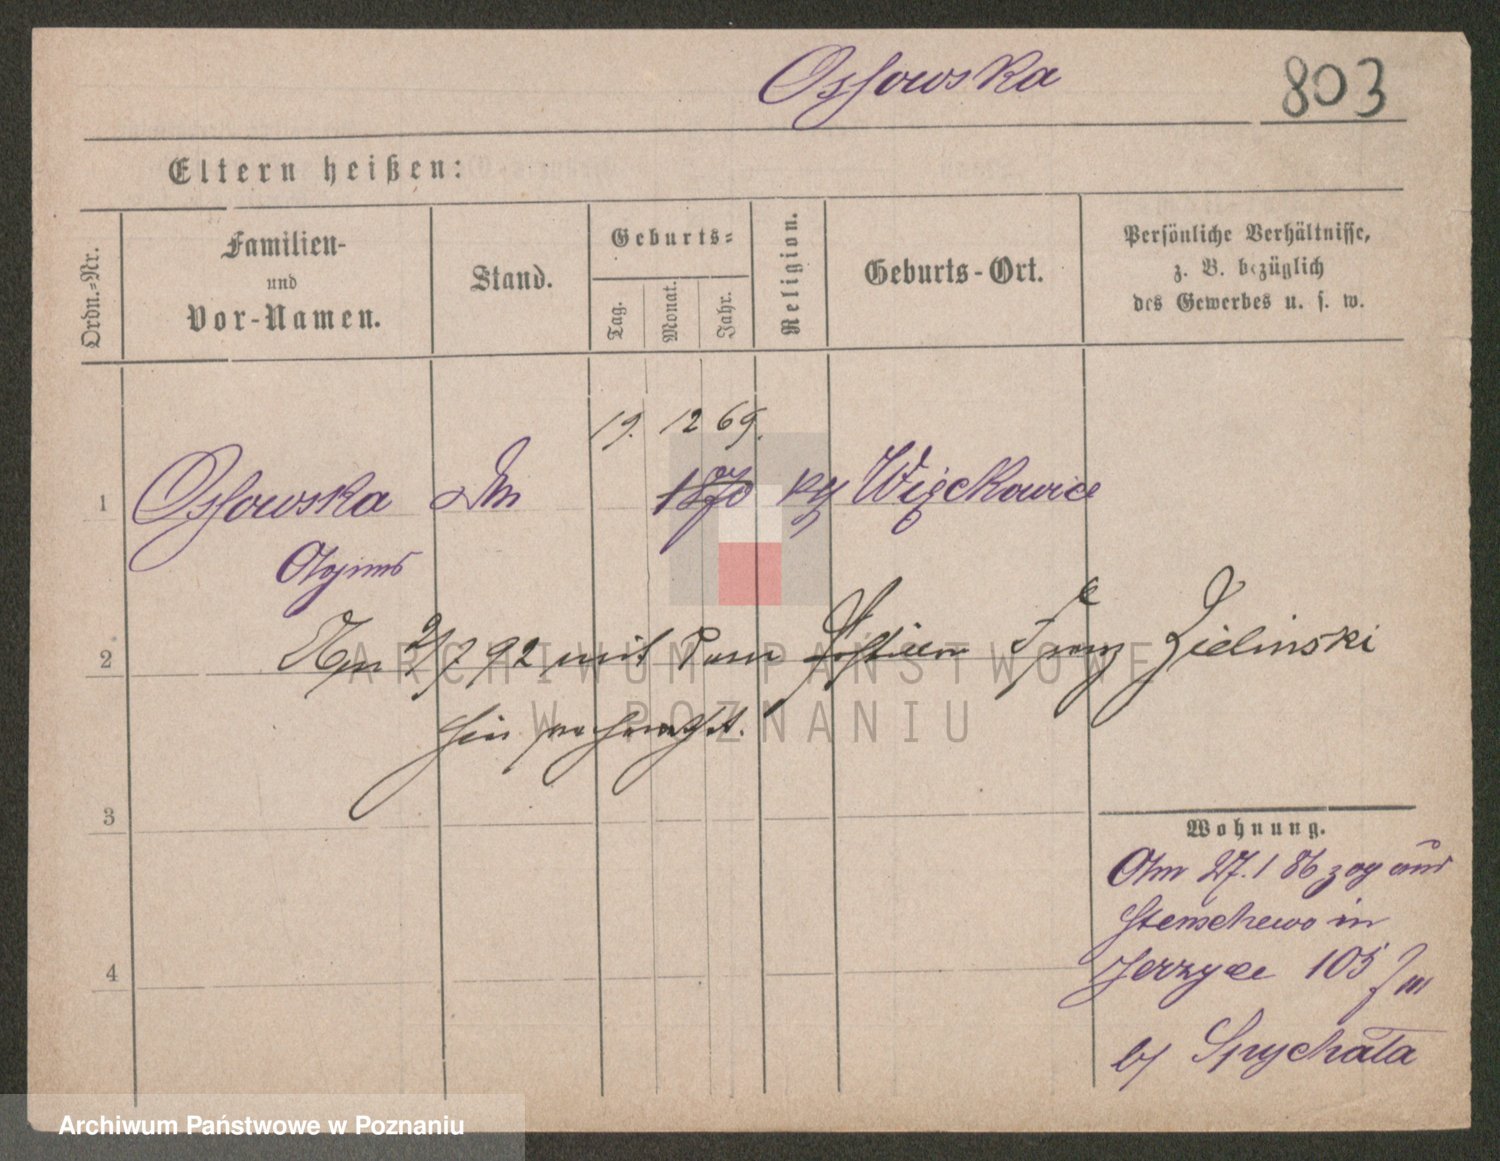 Ossowska 803
Eltern heißen:
Ordn.-Nr.
Familien-
und
Vor-Namen.
Stand.
Geburts-
Tag.
Monat.
Jahr.
Religion.
Geburts-Ort.
Persönliche Verhältnisse,
z. B. bezüglich
des Gewerbes u. s. w.
19. 12 69.
1 Ossowska 1870 Więckowice
2 Am 2/7 92 mit dem Franz Zielinski
3
Wohnung.
Am 27.1 86 zog aus
Stenschewo in
4 Jerzyce 105
b/ Spychała
ARCHIWUM PAŃSTWOWE
W POZNANIU
Archiwum Państwowe w Poznaniu